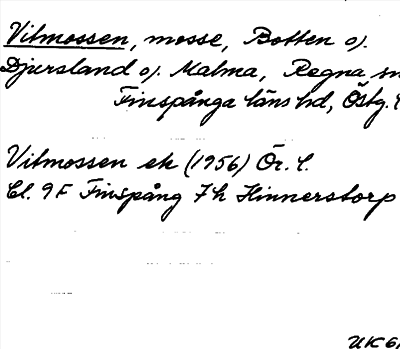 Vitmossen, mosse, Botten o).
Djursland o). Malma, Regna sn
Finspånga läns hd, Östg. l
Vitmossen ek (1956) Ör. l.
Bl. 9F Finspång 7h Hinnerstorp
UK 61